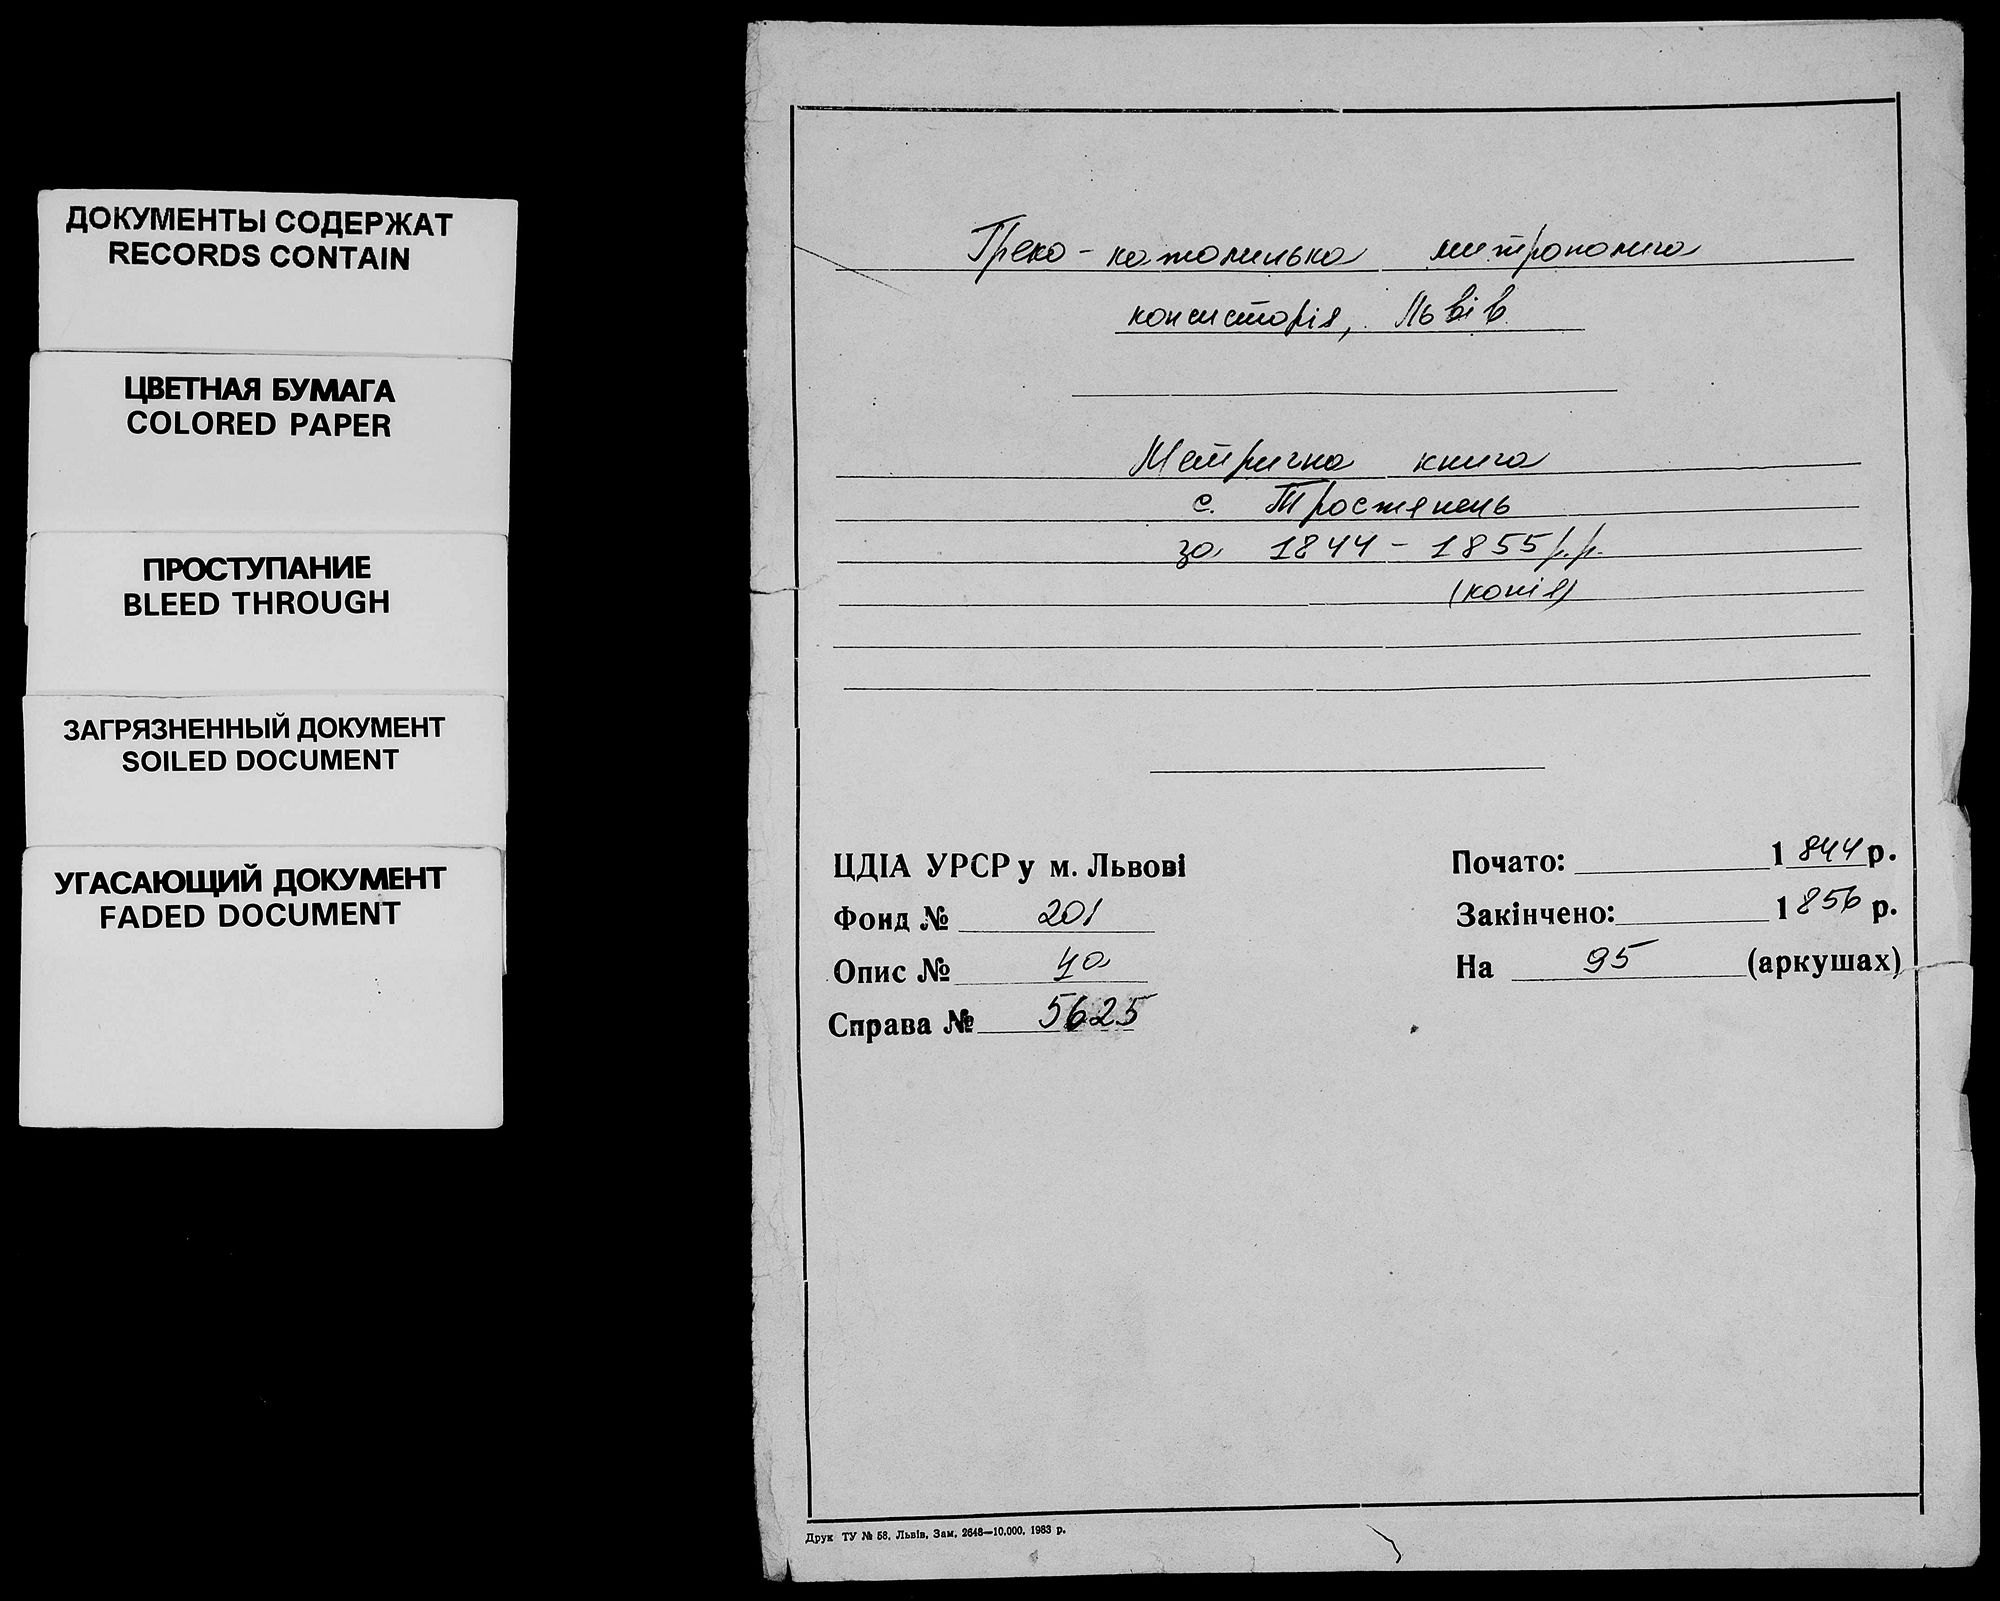 ДОКУМЕНТЫ СОДЕРЖАТ
RECORDS CONTAIN
ЦВЕТНАЯ БУМАГА
COLORED PAPER
ПРОСТУПАНИЕ
BLEED THROUGH
ЗАГРЯЗНЕННЫЙ ДОКУМЕНТ
SOILED DOCUMENT
УГАСАЮЩИЙ ДОКУМЕНТ
FADED DOCUMENT
Греко-католицька митрополича
консисторія, Львів
Метрична книга
с. Тростянець
за 1844-1855 р.р.
(копія)
ЦДІА УРСР у м. Львові
Фонд № 201
Опис № 4а
Справа № 5625
Почато: 1844 р.
Закінчено: 1856 р.
На 95 (аркушах)
Друк ТУ № 58. Львів. Зам. 2648—10.000. 1983 р.